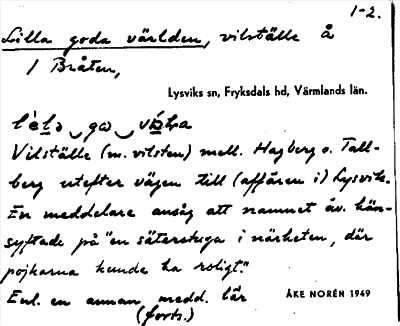 1-2.
Lilla goda världen, vilställe å
1 Bråten,
Lysviks sn, Fryksdals hd, Värmlands län.
Vilställe (m. vilsten) mell. Hagberg o. Tall-
berg utefter vägen till (affären i) Lysvik.
En meddelare ansåg att namnet äv. hän-
syftade på "en säterstuga i närheten, där
pojkarna kunde ha roligt."
Enl. en annan medd. lär
(forts.)
ÅKE NORÉN 1949